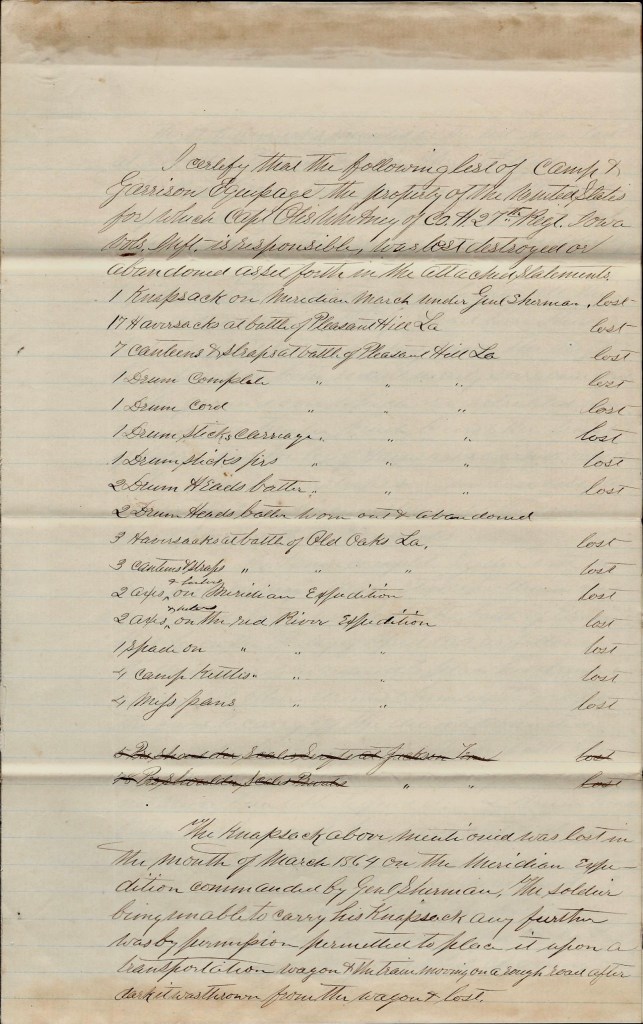 I certify that the following list of Camp &
Garrison Equipage the property of the United States
for which Capt Otis Whitney of Co. H. 27th Regt. Iowa
Vols. Inft. is responsible, was lost destroyed or
abandoned as set forth in the attached statements.
1 Knapsack on Meridian March under Genl Sherman, lost
17 Haversacks at battle of Pleasant Hill La lost
7 Canteens & straps at battle of Pleasant Hill La lost
1 Drum Complete " " " lost
1 Drum Cord " " " lost
1 Drum, sticks, Carriage " " " lost
1 Drum sticks prs " " " lost
2 Drum Heads batter " " " lost
2 Drum Heads batter worn out & abandoned
3 Haversacks at battle of Old Oaks La. lost
3 Canteens & straps " " " lost
2 axes on Meridian Expedition lost
2 axes & helves on the red River Expedition lost
1 spade on " " " lost
4 Camp Kettles " " " lost
4 Mess pans " " lost
Prs Shoulder Scales Sergt at Jackson Tenn lost
Prs Shoulder Scales " " lost
The Knapsack above mentioned was lost in
the month of March 1864 on the Meridian Expe-
dition commanded by Genl Sherman, The soldier
being unable to carry his Knapsack any further
was by permission permitted to place it upon a
transportation wagon & the train moving on a rough road after
dark it was thrown from the wagon & lost.